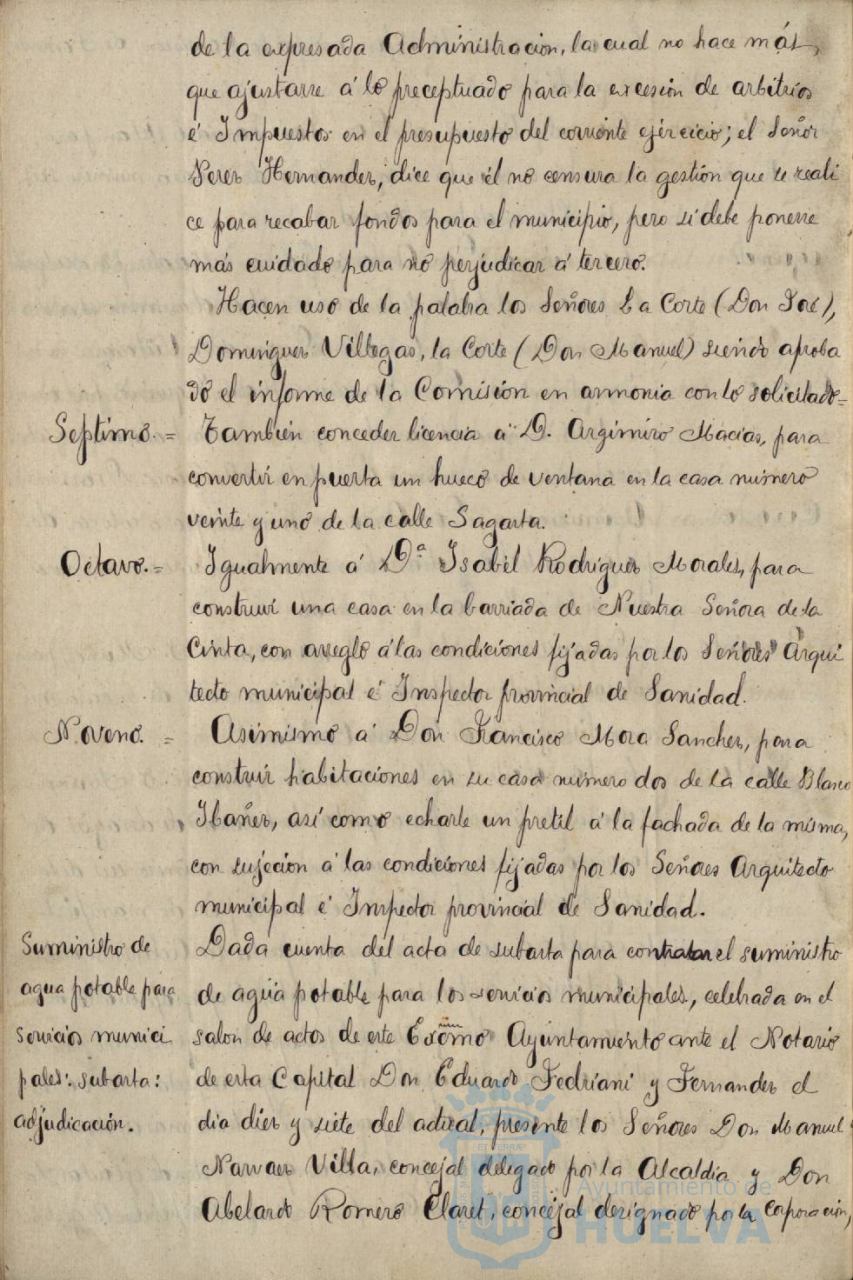 de la expresada Administracion, la cual no hace más,
que ajustarse á lo preceptuado para la excesión de arbitrios
é Impuestos en el presupuesto del corriente ejercicio; el Señor
Perez Hernandez, dice que él no censura la gestión que se reali
ce para recabar fondos para el municipio, pero si debe ponerse
más cuidado para no perjudicar á tercero.
Hacen uso de la palabra los Señores La Corte (Don José),
Dominguez Villegas, la Corte (Don Manuel) siendo aproba
do el informe de la Comisión en armonia con lo solicitado=
Septimo.= También conceder licencia a D. Argimiro Macias, para
convertir en puerta un hueco de ventana en la casa numero
veinte y uno de la calle Sagasta.
Octavo.= Igualmente á Dª Isabel Rodriguez Morales, para
construir una casa en la barriada de Nuestra Señora de la
Cinta, con arreglo á las condiciones fijadas por los Señores Arqui
tecto municipal é Inspector provincial de Sanidad.
Noveno.= Asimismo á Don Francisco Mora Sanchez, para
construir habitaciones en su casa numero dos de la calle Blasco
Ibañez, así como echarle un pretil á la fachada de la misma,
con sujecion á las condiciones fijadas por los Señores Arquitecto
municipal é Inspector provincial de Sanidad.
Suministro de
agua potable para
servicios munici
pales: subasta:
adjudicación.
Dada cuenta del acta de subasta para contratar el suministro
de agua potable para los servicios municipales, celebrada en el
salon de actos de este Exmo Ayuntamiento ante el Notario
de esta Capital Don Eduardo Fedriani y Fernandez el
dia diez y siete del actual, presente los Señores Don Manuel
Narvaez Villa, concejal delegado por la Alcaldia y Don
Abelardo Romero Claret, concejal designado por la corporación,
Ayuntamiento de
HUELVA